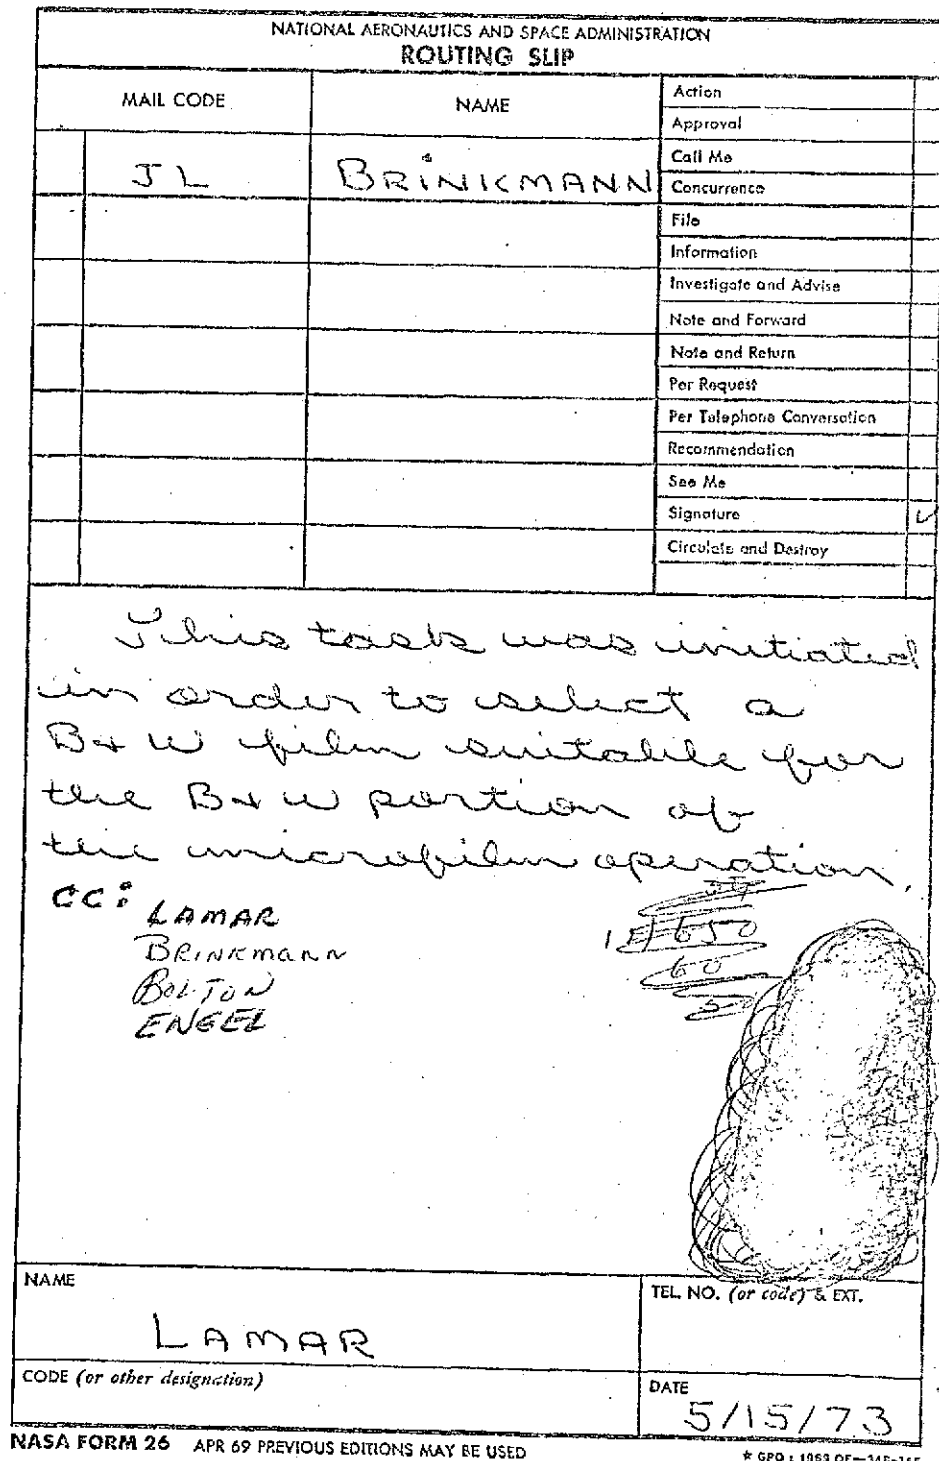 NATIONAL AERONAUTICS AND SPACE ADMINISTRATION
ROUTING SLIP
MAIL CODE
NAME
Action
Approval
JL
BRINKMANN
Call Me
Concurrence
File
Information
Investigate and Advise
Note and Forward
Note and Return
Per Request
Per Telephone Conversation
Recommendation
See Me
Signature ✓
Circulate and Destroy
This task was initiated
in order to select a
B+W film suitable for
the B+W portion of
the microfilm operation.
CC:
LAMAR
BRINKMANN
BOLTON
ENGEL
650
60
NAME
LAMAR
TEL. NO. (or code) & EXT.
CODE (or other designation)
DATE
5/15/73
NASA FORM 26 APR 69 PREVIOUS EDITIONS MAY BE USED
★ GPO : 1969 OF